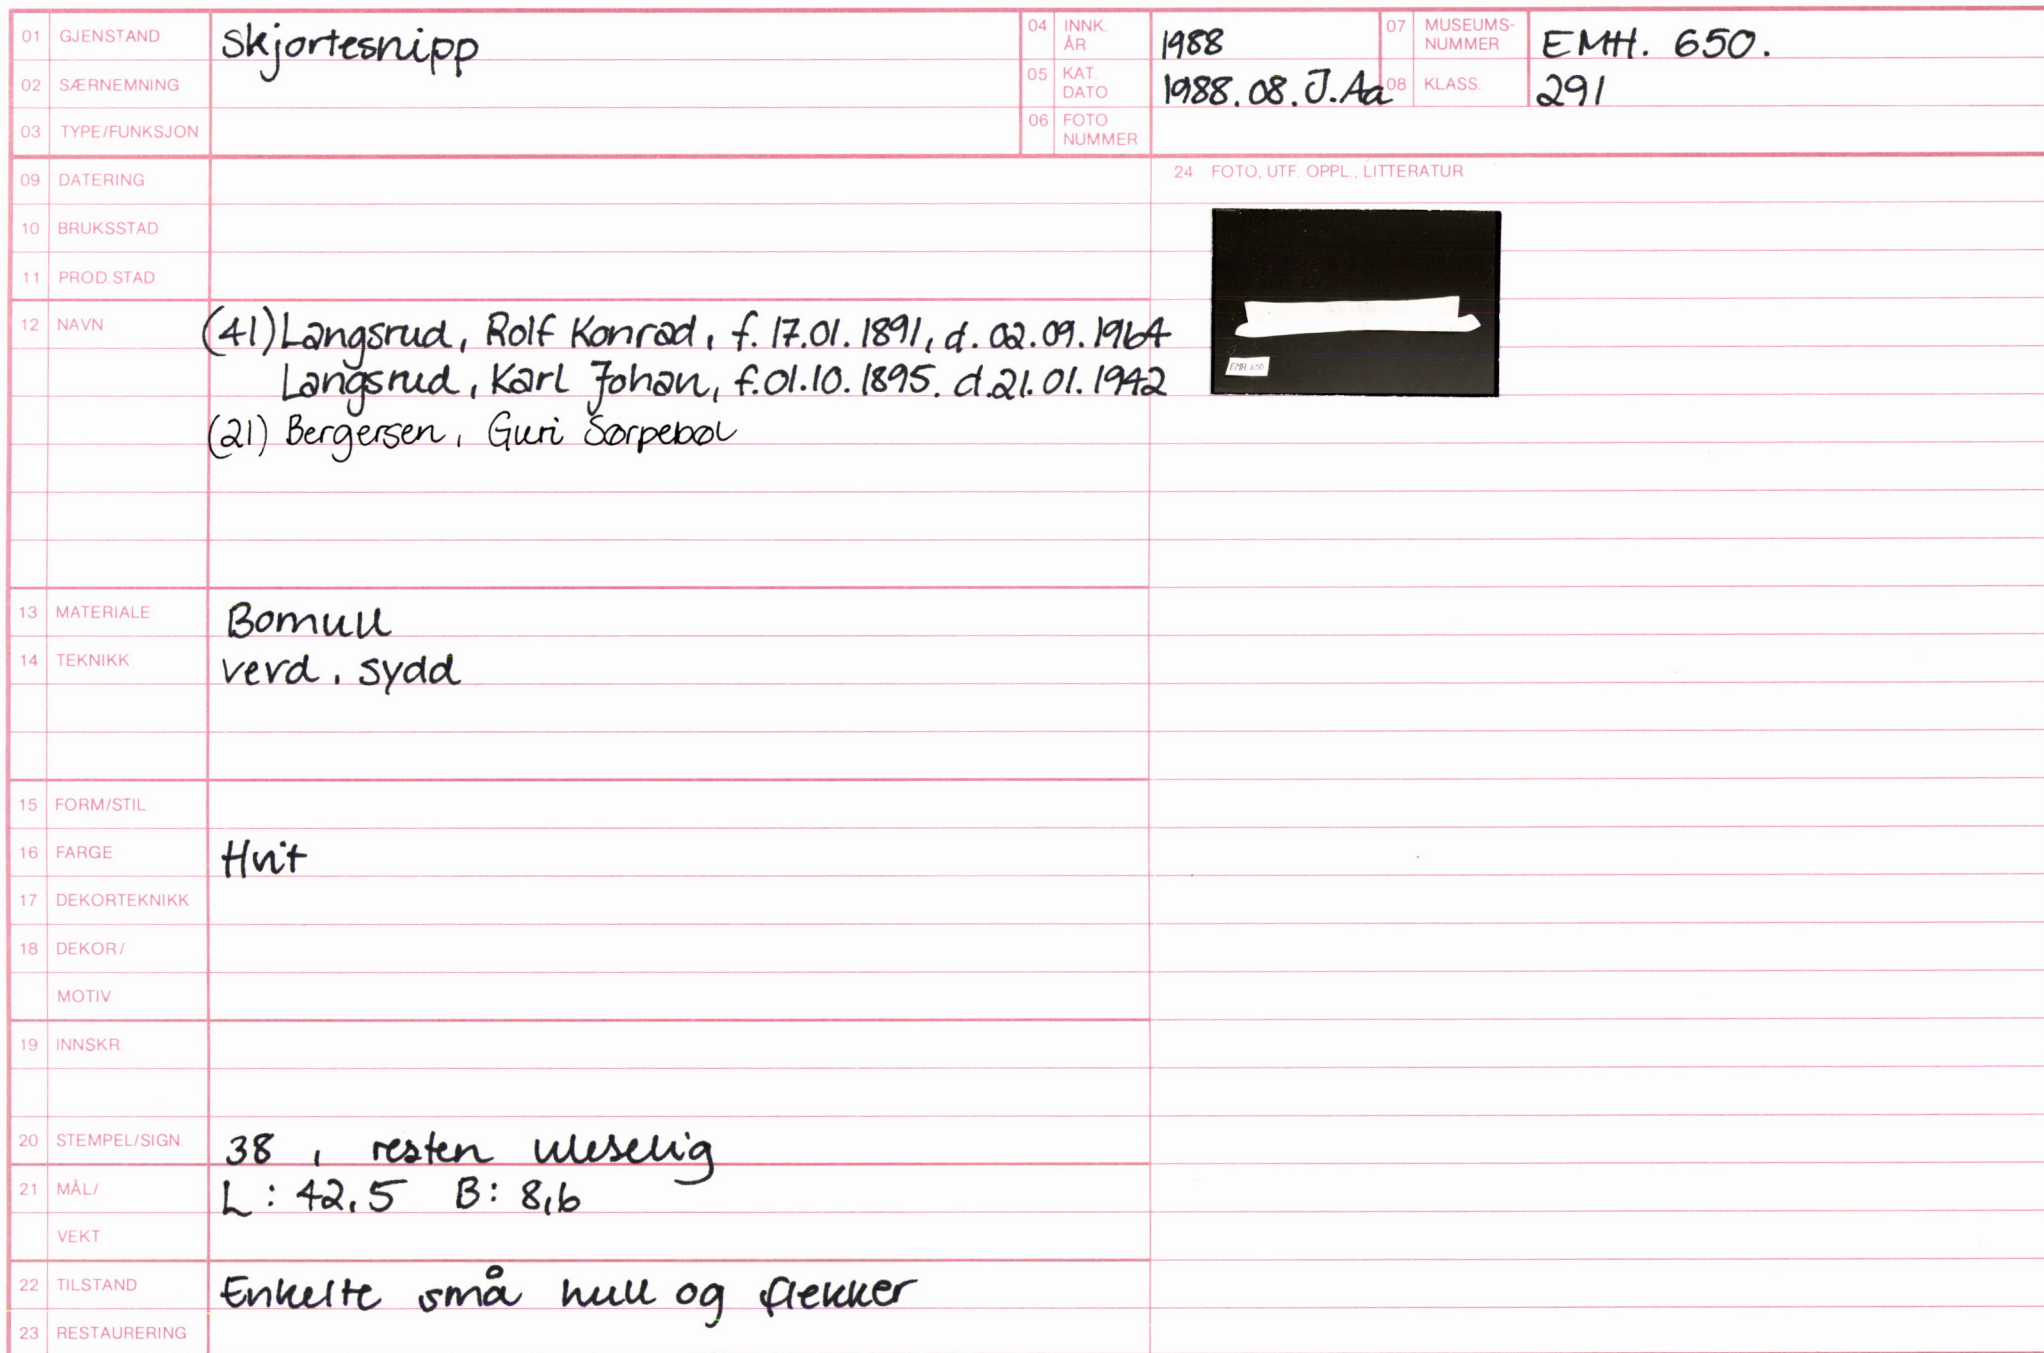 01 GJENSTAND Skjortesnipp
02 SÆRNEMNING
03 TYPE/FUNKSJON
04 INNK. ÅR 1988
05 KAT. DATO 1988.08.J.Aa
06 FOTO NUMMER
07 MUSEUMS-NUMMER EMH. 650.
08 KLASS. 291
09 DATERING
10 BRUKSSTAD
11 PROD.STAD
12 NAVN (41) Langsrud, Rolf Konrad, f. 17.01.1891, d. 02.09.1964
Langsrud, Karl Johan, f.01.10.1895. d.21.01.1942
(21) Bergersen, Guri Sørpebøl
13 MATERIALE Bomull
14 TEKNIKK Vevd, sydd
15 FORM/STIL
16 FARGE Hvit
17 DEKORTEKNIKK
18 DEKOR/
MOTIV
19 INNSKR.
20 STEMPEL/SIGN. 38, resten uleselig
21 MÅL/ L: 42,5 B: 8,6
VEKT
22 TILSTAND Enkelte små hull og flekker
23 RESTAURERING
24 FOTO, UTF. OPPL., LITTERATUR
EMH 650